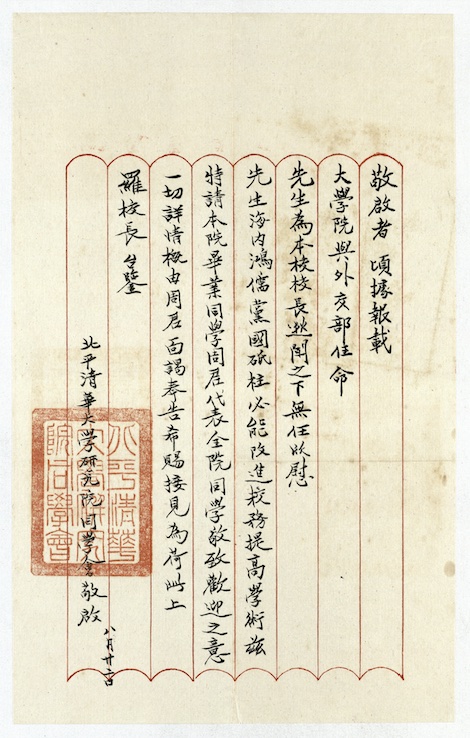 敬啟者頃據報載
大學院與外交部任命
先生為本校校長逖聞之下無任欣慰
先生海內鴻儒黨國砥柱必能改進校務提高學術茲
特請本院畢業同學周君代表全院同學敬致歡迎之意
一切詳情概由周君面謁奉告希賜接見為荷此上
羅校長 台鑒
北平清華大學研究院同學會敬啟
八月廿二日
北平清華
大學研究
院同學會